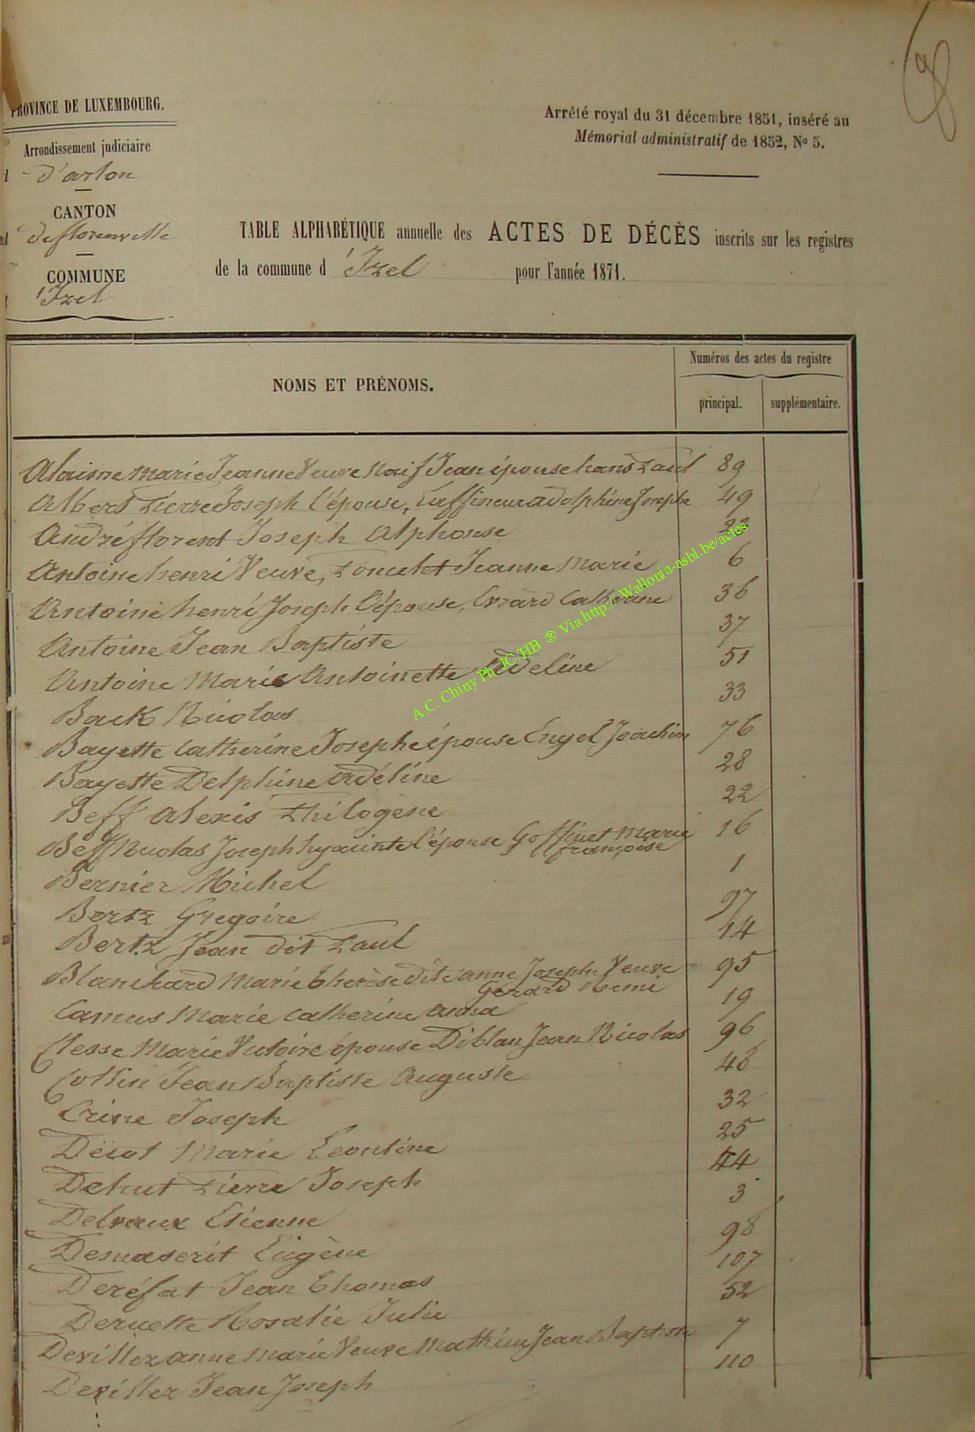 PROVINCE DE LUXEMBOURG.
Arrondissement judiciaire
d'arlon
CANTON
de florenville
COMMUNE
d'Izel
Arrêté royal du 31 décembre 1851, inséré au
Mémorial administratif de 1852, No 5.
TABLE ALPHABÉTIQUE annuelle des ACTES DE DÉCÈS inscrits sur les registres
de la commune d'Izel pour l'année 1871.
NOMS ET PRÉNOMS.
Numéros des actes du registre
principal. supplémentaire.
Marie Jeanne Veuve Naif Jean épouse hans Paul 89
Albert Pierre Joseph l'épouse, Laffineur adolphine Josephe 49
André florent Joseph Alphonse
Antoine henri Veuve, Poncelet Jeanne Marie 6
Antoine henri Joseph l'épouse, Evrard Catherine 36
Antoine Jean Baptiste 37
Antoine Marie Antoinette Adeline 51
Back Nicolas 33
Bayette Catherine Josephe épouse Engel Joachim 76
Bayette Delphine Adéline 28
Beff Alexis Philogène 22
Beff Nicolas Joseph hyacinte l'épouse Goffinet Marie 16
françoise
Bernier Michel 1
Bertz Gregoire 97
Bertz Jean dit Paul 14
Blanchard Marie thérèse dite anne Josephe Veuve 95
Gérard Remi
Camus Marie Catherine anna 19
Clesse Marie Victoire épouse Diblan Jean Nicolas 96
Collin Jean Baptiste Auguste 48
Crine Joseph 32
Décot Marie Léontine 25
Dehut Pierre Joseph 44
Delvaux Etienne 3
Eugène 98
Jean thomas 107
Rosalie Julie 52
Devillez anne Marie Veuve Mathieu Jean Baptiste 7
Devillez Jean Joseph 110
A.C. Chiny Ph JC/HB ® Via http://Wallonia-asbl.be/actes